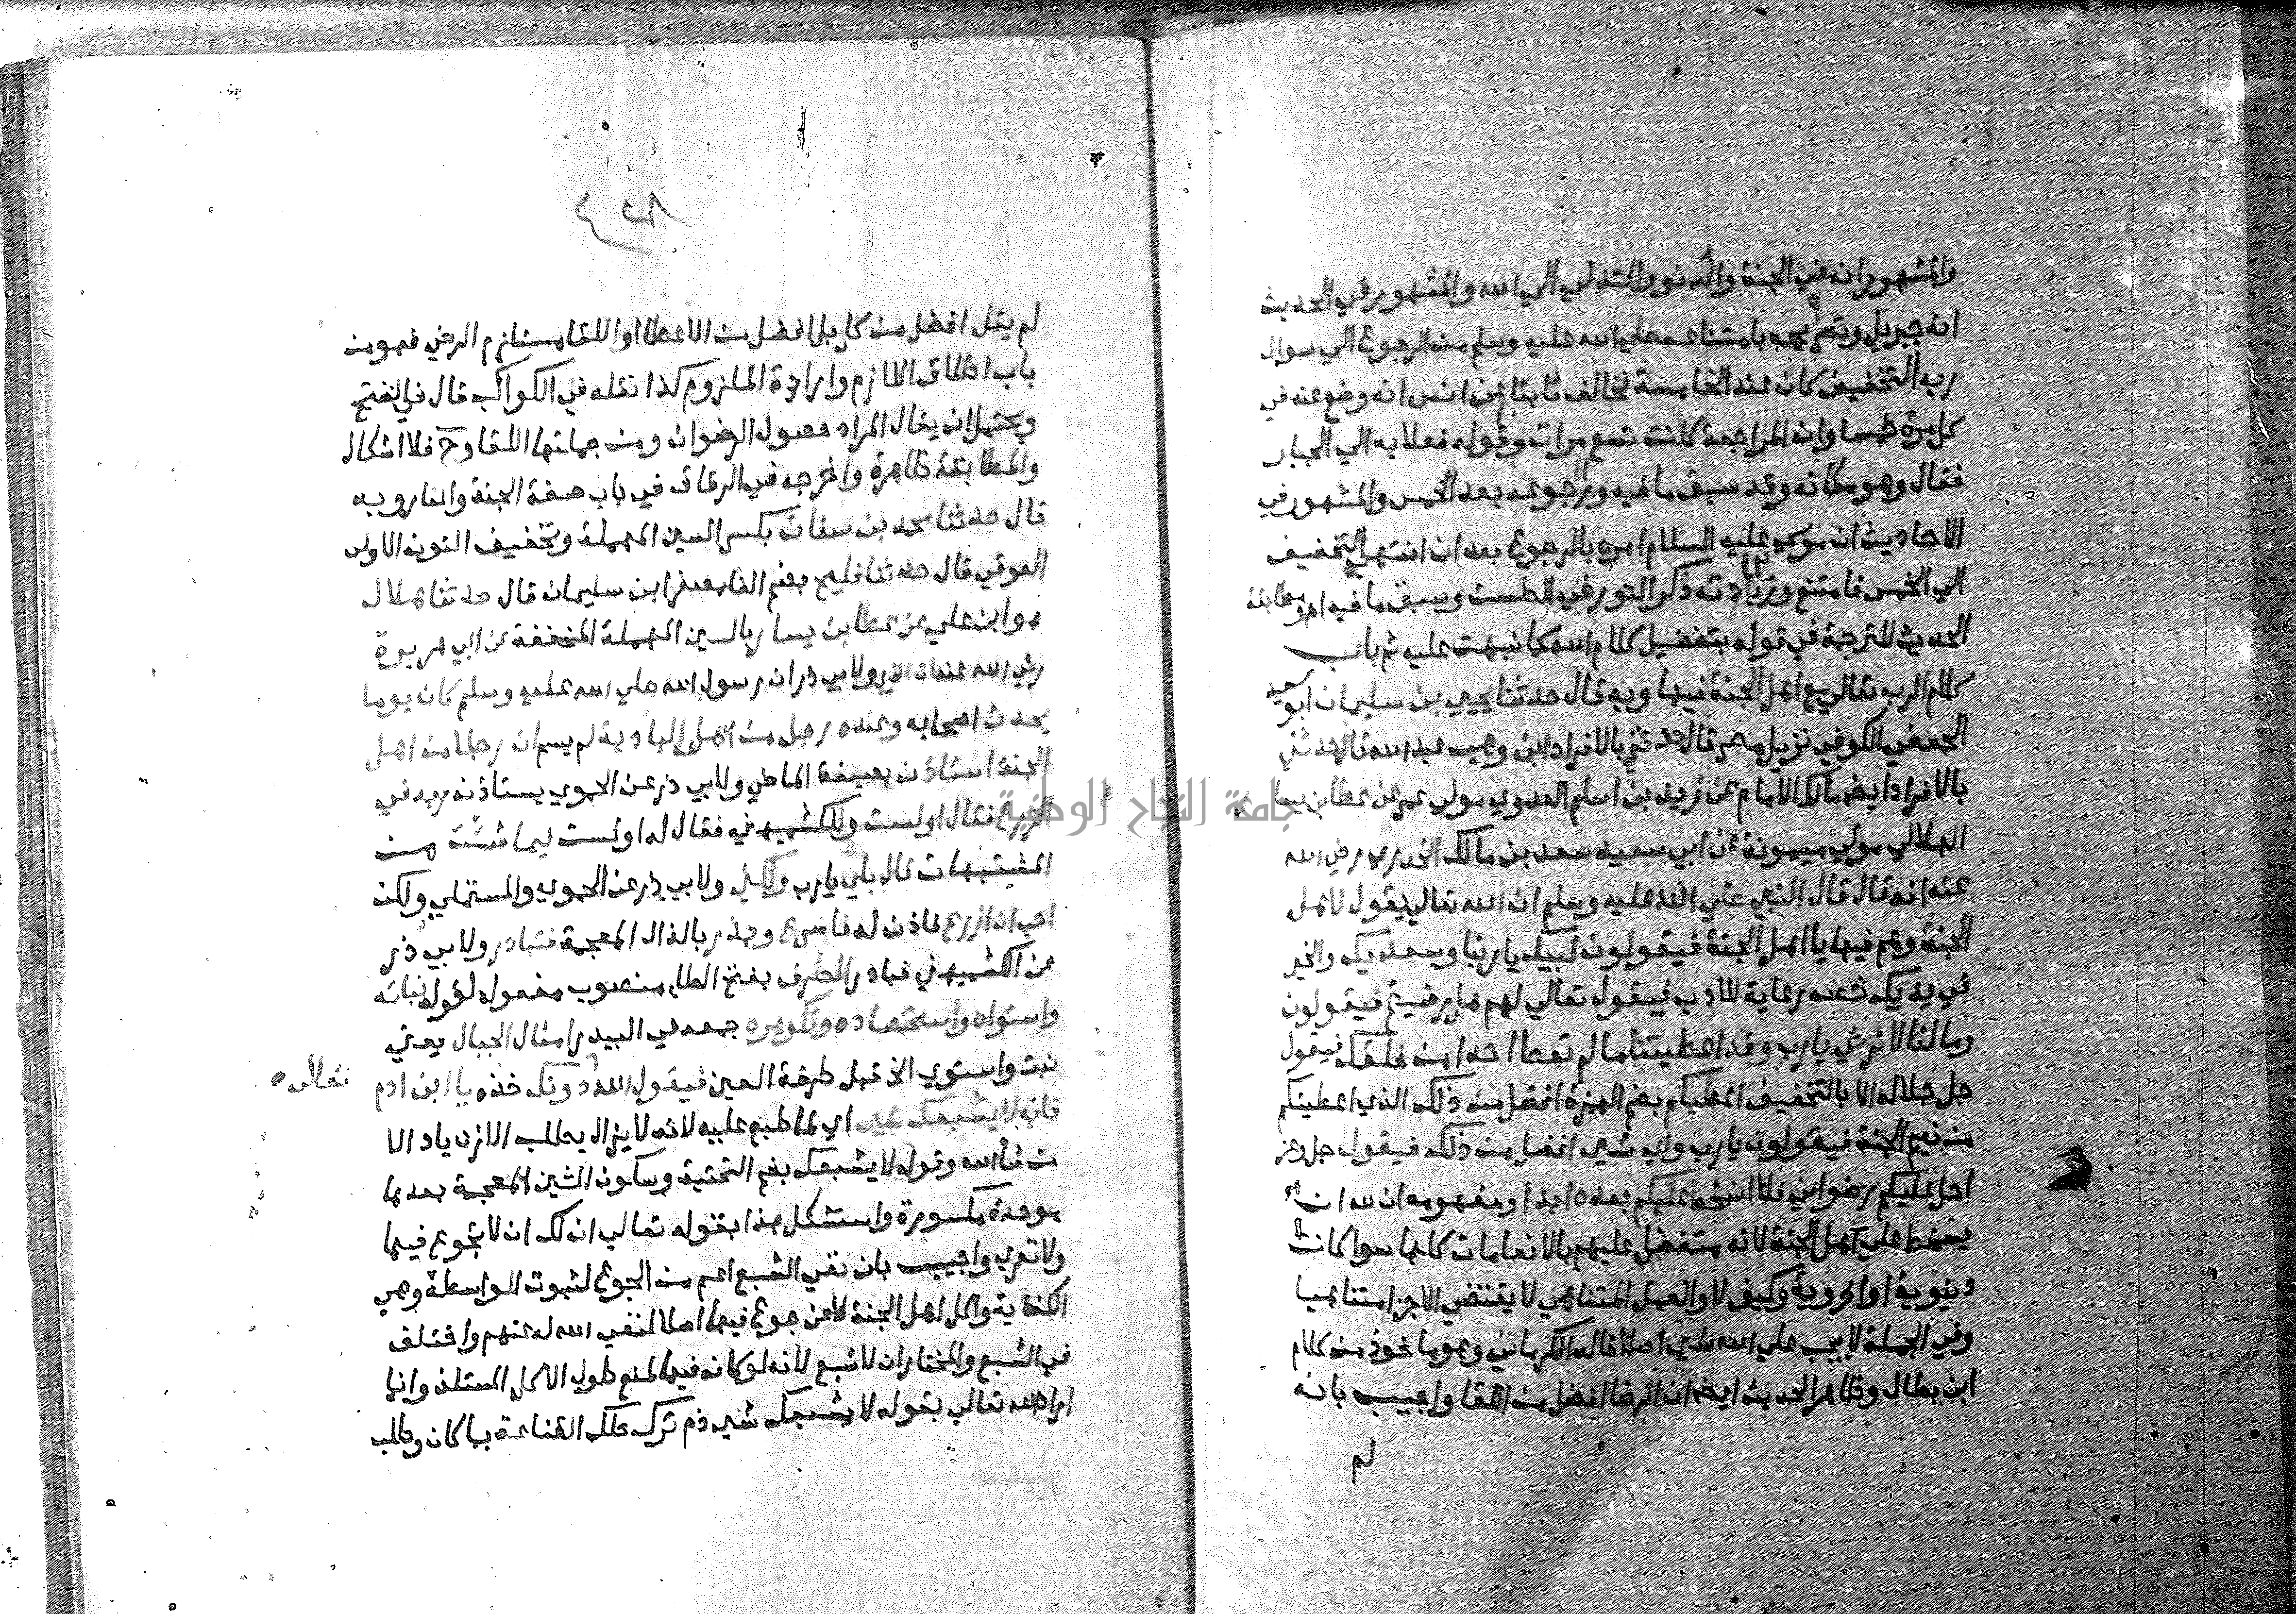 والمشهور انه في الجنة والدنو والتدلي الي الله والمشهور في الحديث
انه جبريل وتصريحه بامتناعه صلي الله عليه وسلم من الرجوع الي سوال
ربه التخفيف كان عند الخامسة فخالف ثابتا عن انس انه وضع عنه في
كل مرة خمسا وان المراجعة كانت تسع مرات وقوله فعلا به الي الجبار
فقال وهو مكانه وقد سبق ما فيه ورجوعه بعد الخمس والمشهور في
الاحاديث ان موسي عليه السلام امره بالرجوع بعد ان انتهي التخفيف
الي الخمس فامتنع وزيادته ذكر التور في الطست وسبق ما فيه اهـ ومطابقة
الحديث للترجمة في قوله بتفضيل كلام الله كما نبهت عليه ثم باب
كلام الرب تعالي مع اهل الجنة فيها وبه قال حدثنا يحيي بن سليمان ابو سعيد
الجعفي الكوفي نزيل مصر قال حدثني بالافراد ابن وهب عبد الله قال حدثني
بالافراد ايضا مالك الامام عن زيد بن اسلم العدوي مولي عمر عن عطا بن يسار
الهلالي مولي ميمونة عن ابي سعيد سعد بن مالك الخدري رضي الله
عنه انه قال قال النبي صلي الله عليه وسلم ان الله تعالي يقول لاهل
الجنة وهم فيها يا اهل الجنة فيقولون لبيك يا ربنا وسعديك والخير
في يديك خصه رعاية للادب فيقول تعالي لهم هل رضيتم فيقولون
وما لنا لا نرضي يا رب وقد اعطيتنا ما لم تعط احدا من خلقك فيقول
جل جلاله الا بالتخفيف اعطيكم بضم الهمزة افضل من ذلك الذي اعطيتكم
من نعيم الجنة فيقولون يا رب واي شي افضل من ذلك فيقول جل وعز
احل عليكم رضواني فلا اسخط عليكم بعده ابدا ومفهومه ان لله ان
يسخط علي اهل الجنة لانه متفضل عليهم بالانعامات كلها سوا كانت
دنيوية او اخروية وكيف لا والعمل المتناهي لا يقتضي الا جزا متناهيا
وفي الجملة لا يجب علي الله شي اصلا قاله الكرماني وهو ماخوذ من كلام
ابن بطال وظاهر الحديث ايضا ان الرضا افضل من اللقا واجيب بانه
لم
٤٢٨
لم يقل افضل من كل بل افضل من الاعطا او اللقا مستلزم الرضي فهو من
باب اطلاق اللازم وارادة الملزوم كذا نقله في الكواكب قال في الفتح
ويحتمل ان يقال المراد حصول الرضوان ومن جملتها اللقا وح فلا اشكال
والمطابقة ظاهرة واخرجه في الرقاق في باب صفة الجنة والنار وبه
قال حدثنا محمد بن سنان بكسر السين المهملة وتخفيف النون الاولي
العوقي قال حدثنا فليح بضم الفا مصغرا بن سليمان قال حدثنا هلال
هو ابن علي عن عطا بن يسار بالسين المهملة المخففة عن ابي هريرة
رضي الله عنه ان النبي ولابي ذر ان رسول الله صلي الله عليه وسلم كان يوما
يحدث اصحابه وعنده رجل من اهل البادية لم يسم ان رجلا من اهل
الجنة استاذن بصيغة الماضي ولابي ذر عن الحموي يستاذن ربه في
الزرع فقال اولست وللكشميهني فقال له اولست فيما شئت من
المشتهيات قال بلي يا رب ولكني ولابي ذر عن الحموي والمستملي ولكن
احب ان ازرع فاذن له فاسرع وبذر بالذال المعجمة فتبادر ولابي ذر
عن الكشميهني فبادر الطرف بفتح الطا منصوب مفعول لقوله نباته
واستواه واستحصاده وتكويره جمعه في البيدر امثال الجبال يعني
نبت واستوي الخ قبل طرفة العين فيقول الله تعالي دونك خذه يا ابن ادم
فانه لا يشبعك شي اي لما طبع عليه لانه لا يزال يطلب الازدياد الا
من شا الله وقوله لا يشبعك بضم التحتية وسكون الشين المعجمة بعدها
موحدة مكسورة واستشكل هذا بقوله تعالي ان لك ان لا تجوع فيها
ولا تعري واجيب بان نفي الشبع اعم من الجوع لثبوت الواسطة وهي
الكفاية واكل اهل الجنة لا عن جوع فيها اصلا لنفي الله له عنهم واختلف
في الشبع والمختار ان لا شبع لانه لو كان فيها لمنع طول الاكل المستلذ وانما
اراد الله تعالي بقوله لا يشبعك شي ذم ترك تلك القناعة بما كان وطلب
جامعة النجاح الوطنية